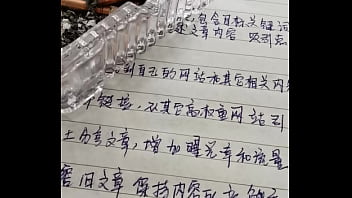 包含目标关键词
文章内容 吸引点
到自己的网站和其它相关内
链接，从其它高权重网站引
上分享文章，增加曝光率和流量
旧文章 保持内容